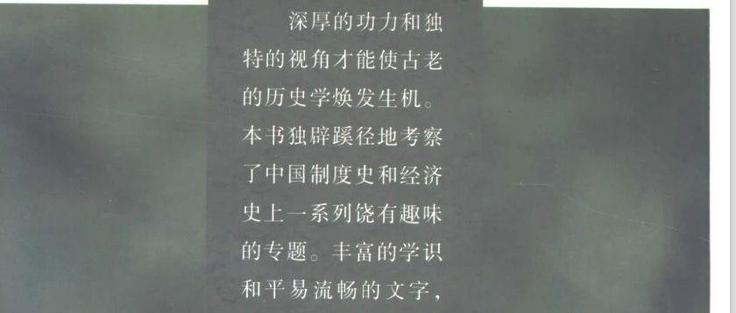 深厚的功力和独
特的视角才能使古老
的历史学焕发生机。
本书独辟蹊径地考察
了中国制度史和经济
史上一系列饶有趣味
的专题。丰富的学识
和平易流畅的文字，